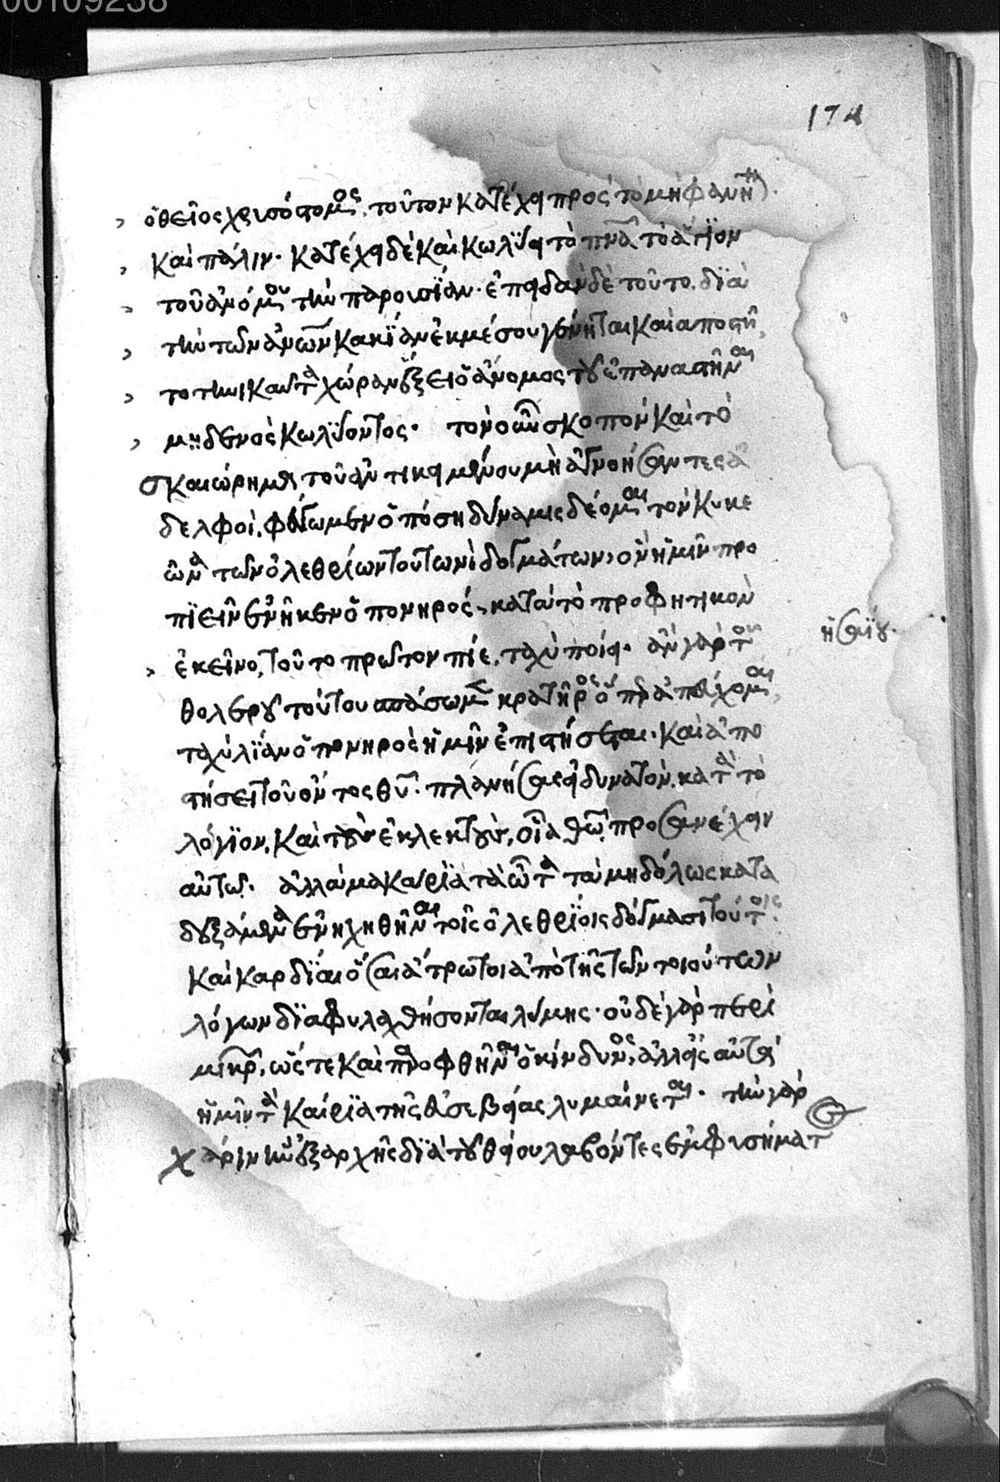 00109238
174
ὁ θεῖος χρισόστομος, τοῦτον κατέχει πρὸς τὸ μὴ φανῆναι.
καὶ πάλιν. κατέχει δὲ καὶ κωλύει τὸ πνα τὸ ἅγιον
τοῦ ἀνόμου τὴν παρουσίαν. ἐπειδὰν δὲ τοῦτο, διὰ
τὴν τῶν ἀνων κακίαν ἐκ μέσου γένηται καὶ αποστῆ,
τοτηνικαῦτα χώραν ἕξει ὁ ἄνομος τοῦ ἐπαναστῆναι
μηδενὸς κωλύοντος. τὸν οὖν σκοπὸν καὶ τὸ
σκαιώρημα τοῦ ἀντικειμένου μὴ ἀγνοήσαντες ἀ
δελφοὶ, φύγωμεν ὅποση δύναμις δέομαι τὸν κυκε
ῶνα τῶν ὀλεθρίων τούτων δογμάτων, ὃν ἡμῖν προ
πιεῖν ἐνῆκεν ὁ πονηρός, κατὰ τὸ προφητικὸν
ἐκεῖνο, τοῦτο πρῶτον πίε, ταχὺ ποίει. ἂν γὰρ τοῦ
ἠσαΐου.
θολεροῦ τούτου σπάσωμεν κρατῆρος
ταχὺ λίαν ὁ πονηρὸς ἡμῖν ἐπιστήσεται. καὶ ἀπο
στήσει τοῦ ὄντος θυ. πλανήσας εἰ δυνατὸν, κατὰ τὸ
λόγιον, καὶ τοὺς ἐκλεκτοὺς, οἷα θω προσανέχειν
αὐτῶ. ἀλλὰ μακάρια τὰ ὦτα τὰ μηδόλως κατα
δεξάμενα ἐνηχηθῆναι τοῖς ὀλεθρίοις δόγμασι τούτοις.
καὶ καρδίαι ὅσαι ἄτρωτοι ἀπὸ τῆς τῶν τοιούτων
λόγων διαφυλαχθήσονται λύμης. οὐδὲ γὰρ περὶ
μικρ, ὥς τε καὶ ὁ κίνδυνος, ἀλλ' εἰς αὐτὰ
ἡμῖν τὰ καίρια τῆς θεοσεβείας λυμαίνεται. τὴν γὰρ
χάριν ἣν ἐξαρχῆς διὰ τοῦ θείου λαβόντες ἐμφυσήματ